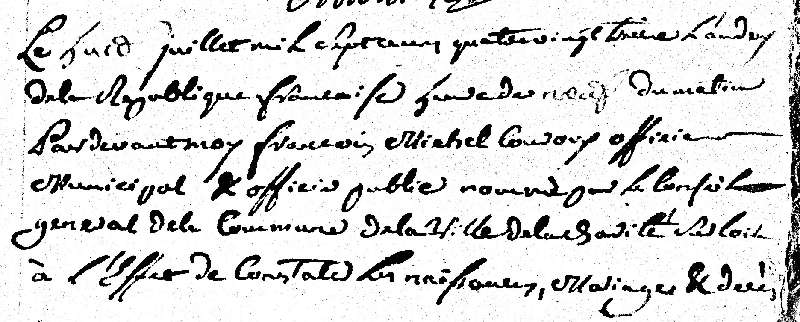 Le huit juillet mil sept cent quatre vingt treize L'an deux
de la Republique françaises heure de neuf du matin
Pardevant moy françois Michel officier
Municipal & officier public nommé par le Conseil
general dela Commune dela Ville dela charité sur loire
à l'Effet de Constater les naissances, Mariages & decès